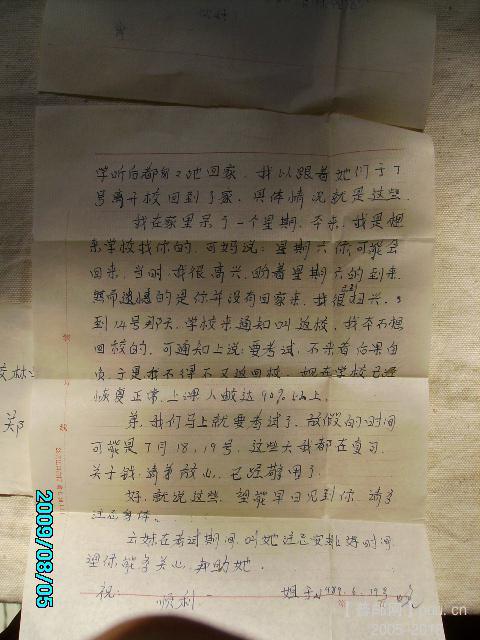 学听后都纷纷地回家，我以跟着她们于7
号离开校回到了家，具体情况就是这些
我在家里呆了一个星期，本来，我是想
来学校找你的，可妈说：星期六你可能会
回来，当时，我很高兴，盼着星期六的到来，
然而遗憾的是你并没有回家来，我很扫兴，
到14号那天，学校来通知叫返校，我本不想
回校的，可通知上说：要考试，不来者后果自
负，于是我不得不又返回校，现在学校已经
恢复正常，上课人数达90%以上。
弟，我们马上就要考试了，放假的时间
可能是7月18，19号，这些天我都在复习，
关于钱，请弟放心，已足够用了
好，就说这些，望能早日见到你，请多
注意身体。
六妹在考试期间，叫她注意安排好时间，
望你能多关心，帮助她。
祝：
顺利
姐于1989.6.19号晚
校
郑
2009/08/05
2005-2016